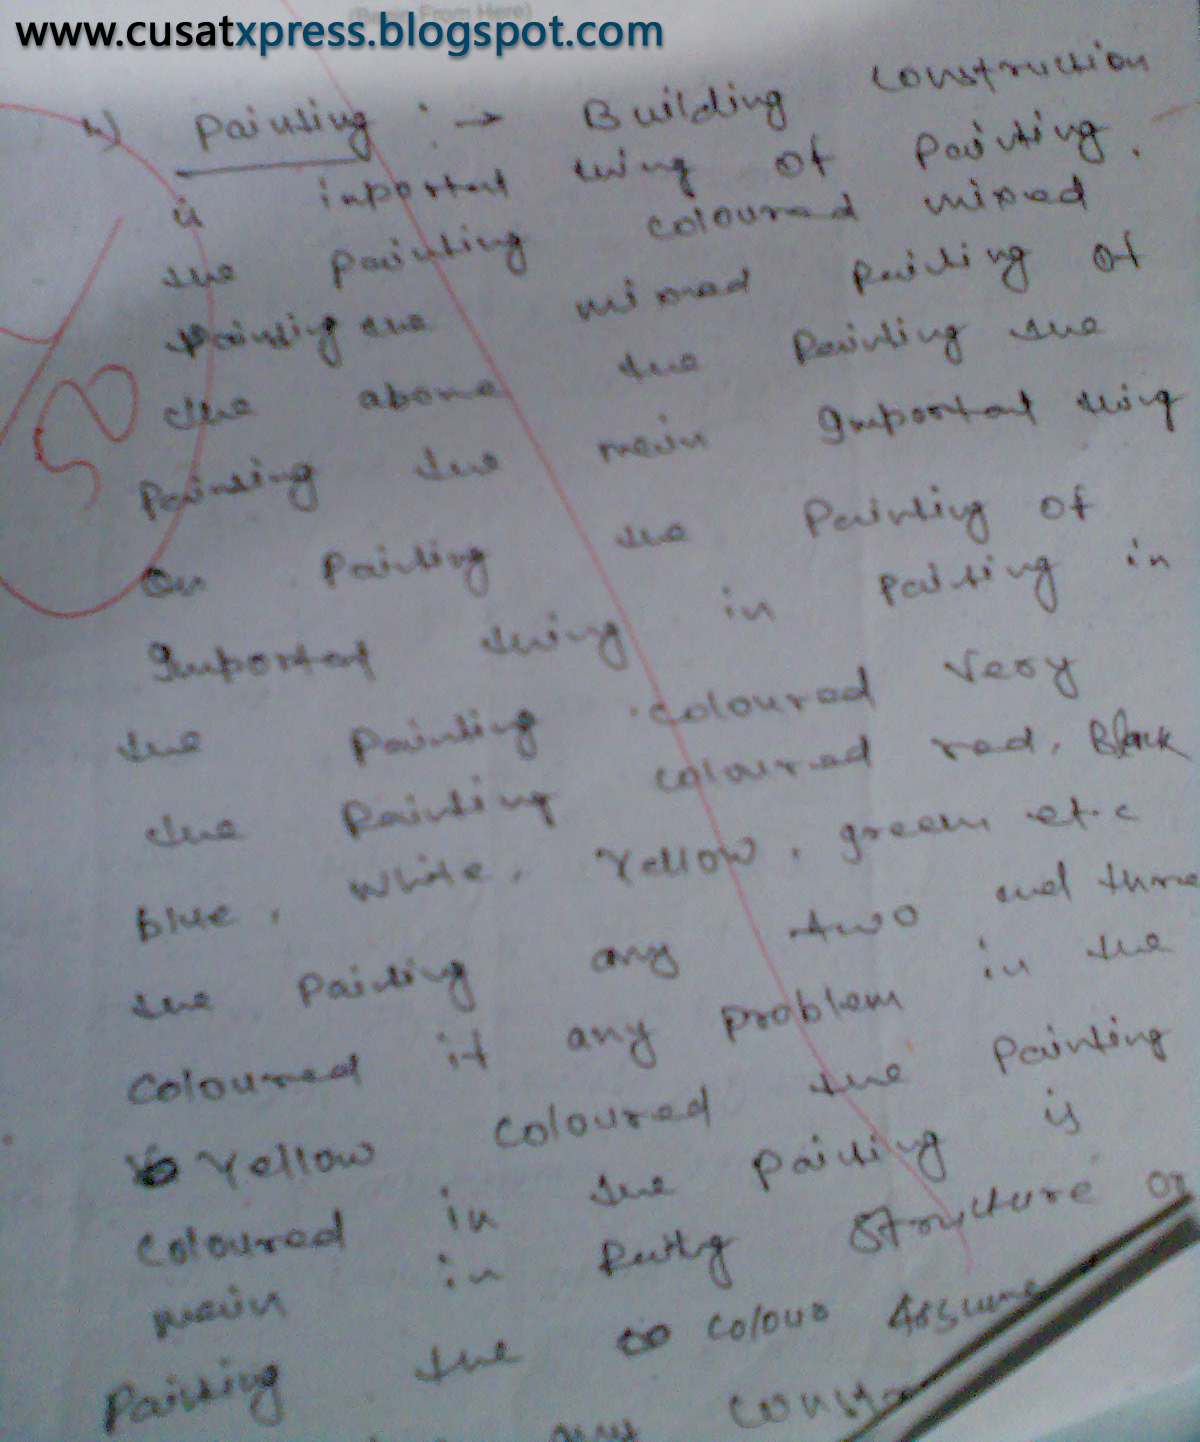 (Begin From Here)
www.cusatxpress.blogspot.com
4) Painting :→ Building construction
is inportant thing of painting.
the painting coloured mixed
painting the mixed painting of
the above the painting the
painting the main Important thing
on painting the painting of
Important thing in painting in
the painting coloured very
the painting coloured red, Black
blue, white, Yellow, green etc
the painting any two and three
coloured if any problem in the
Yellow coloured the painting
coloured in the painting is
main in structure or
painting the colour Assume
any constr
50